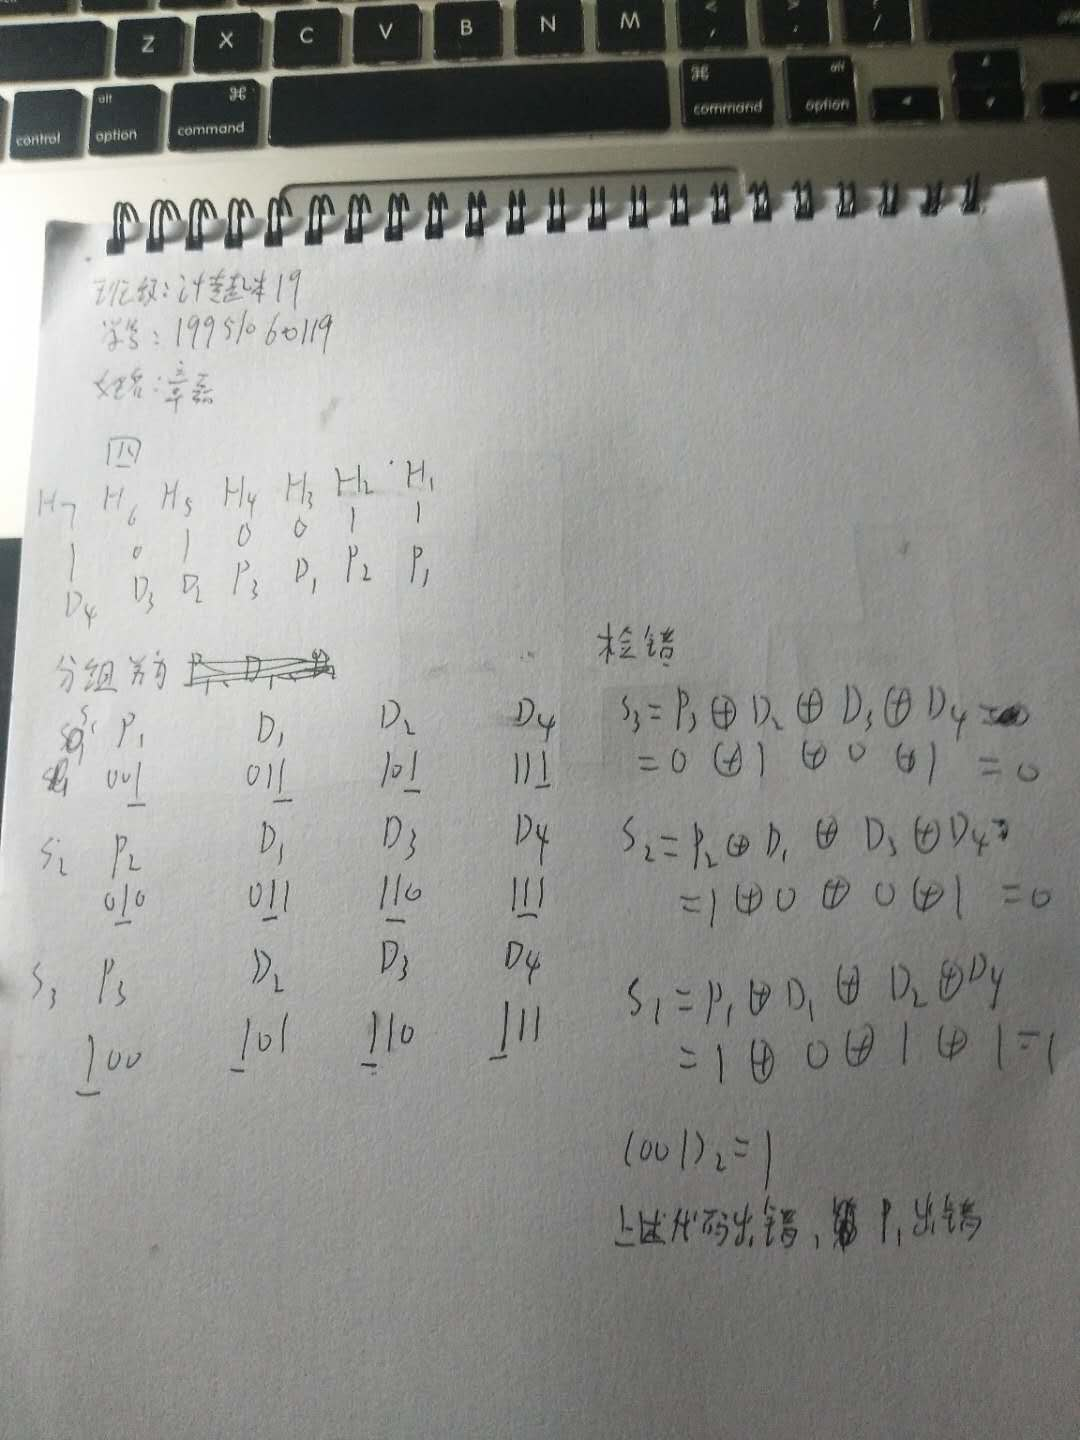 Z X C V B N M < , > . ? /
control alt option ⌘ command ⌘ command alt option
班级:计差起本19
学号:199510660119
姓名:章磊
四
H₇ H₆ H₅ H₄ H₃ H₂ H₁
1 0 1 0 0 1 1
D₄ D₃ D₂ P₃ D₁ P₂ P₁
分组为
S₁ P₁ D₁ D₂ D₄
001 011 101 111
S₂ P₂ D₁ D₃ D₄
010 011 110 111
S₃ P₃ D₂ D₃ D₄
100 101 110 111
检错
S₃=P₃⊕D₂⊕D₃⊕D₄
=0⊕1⊕0⊕1=0
S₂=P₂⊕D₁⊕D₃⊕D₄=
=1⊕0⊕0⊕1=0
S₁=P₁⊕D₁⊕D₂⊕D₄
=1⊕0⊕1⊕1=1
(001)₂=1
上述代码出错, P₁出错